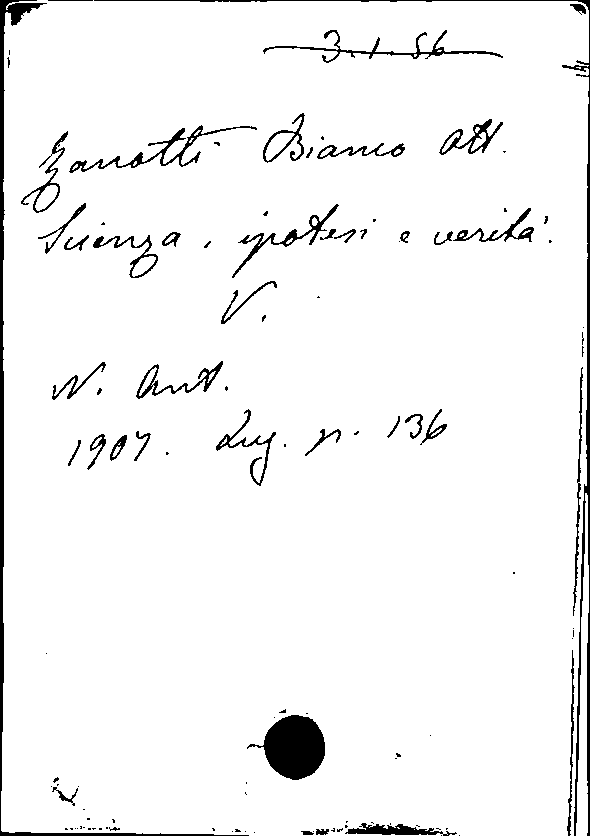 3.1.56
Zanotti Bianco Ott.
Scienza, ipotesi e verità.
V.
N. Ant.
1907. Lug. p. 136